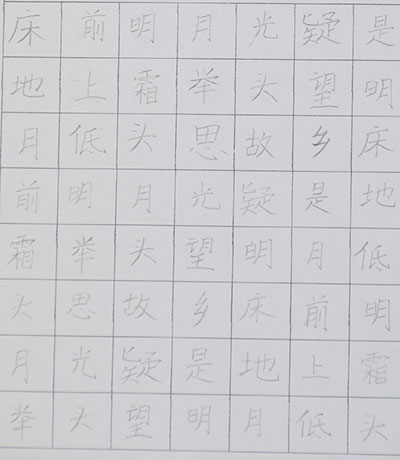 床前明月光疑是
地上霜举头望明
月低头思故乡床
前明月光疑是地
霜举头望明月低
头思故乡床前明
月光疑是地上霜
举头望明月低头